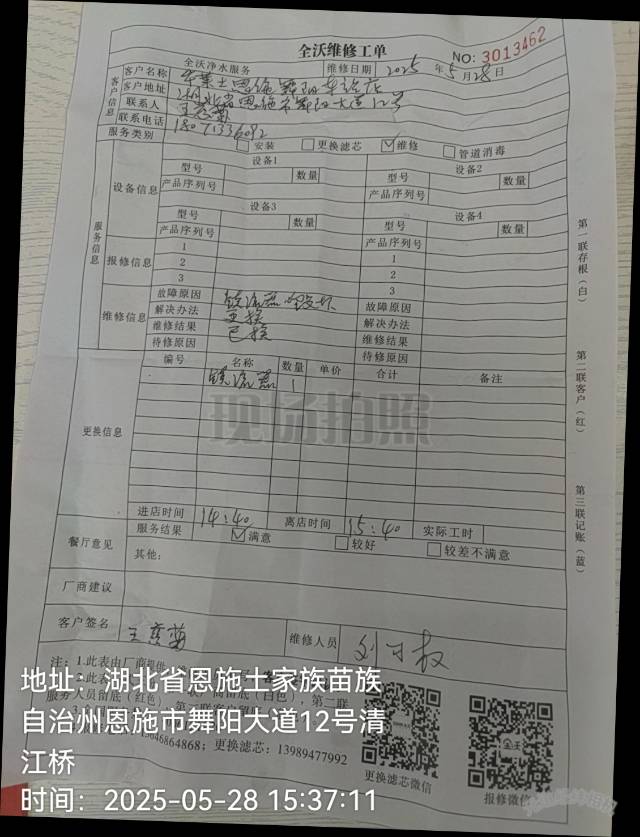 全沃维修工单
NO: 3013462
全沃净水服务 维修日期 2025 年 5 月 28 日
客户信息
客户名称
客户地址 湖北省恩施市舞阳大道12号
联系人
联系电话
服务类别 安装 更换滤芯 ☑维修 管道消毒
服务信息
设备信息
设备1 设备2
型号 数量 型号 数量
产品序列号 产品序列号
设备3 设备4
型号 数量 型号 数量
产品序列号 产品序列号
报修信息
1 1
2 2
3 3
维修信息
故障原因 镇流器毁坏 故障原因
解决办法 更换 解决办法
维修结果 已换 维修结果
待修原因 待修原因
更换信息
编号 名称 数量 单价 合计 备注
镇流器 1
现场拍照
进店时间 14:40 离店时间 15:40 实际工时
餐厅意见
服务结果 ☑满意 较好 较差不满意
其他:
厂商建议
客户签名 维修人员
第一联存根(白)
第二联客户(红)
第三联记账(蓝)
注:1.此表由厂商提供
更换滤芯:13989477992
更换滤芯微信
报修微信
全沃
地址:湖北省恩施土家族苗族
自治州恩施市舞阳大道12号清
江桥
时间:2025-05-28 15:37:11